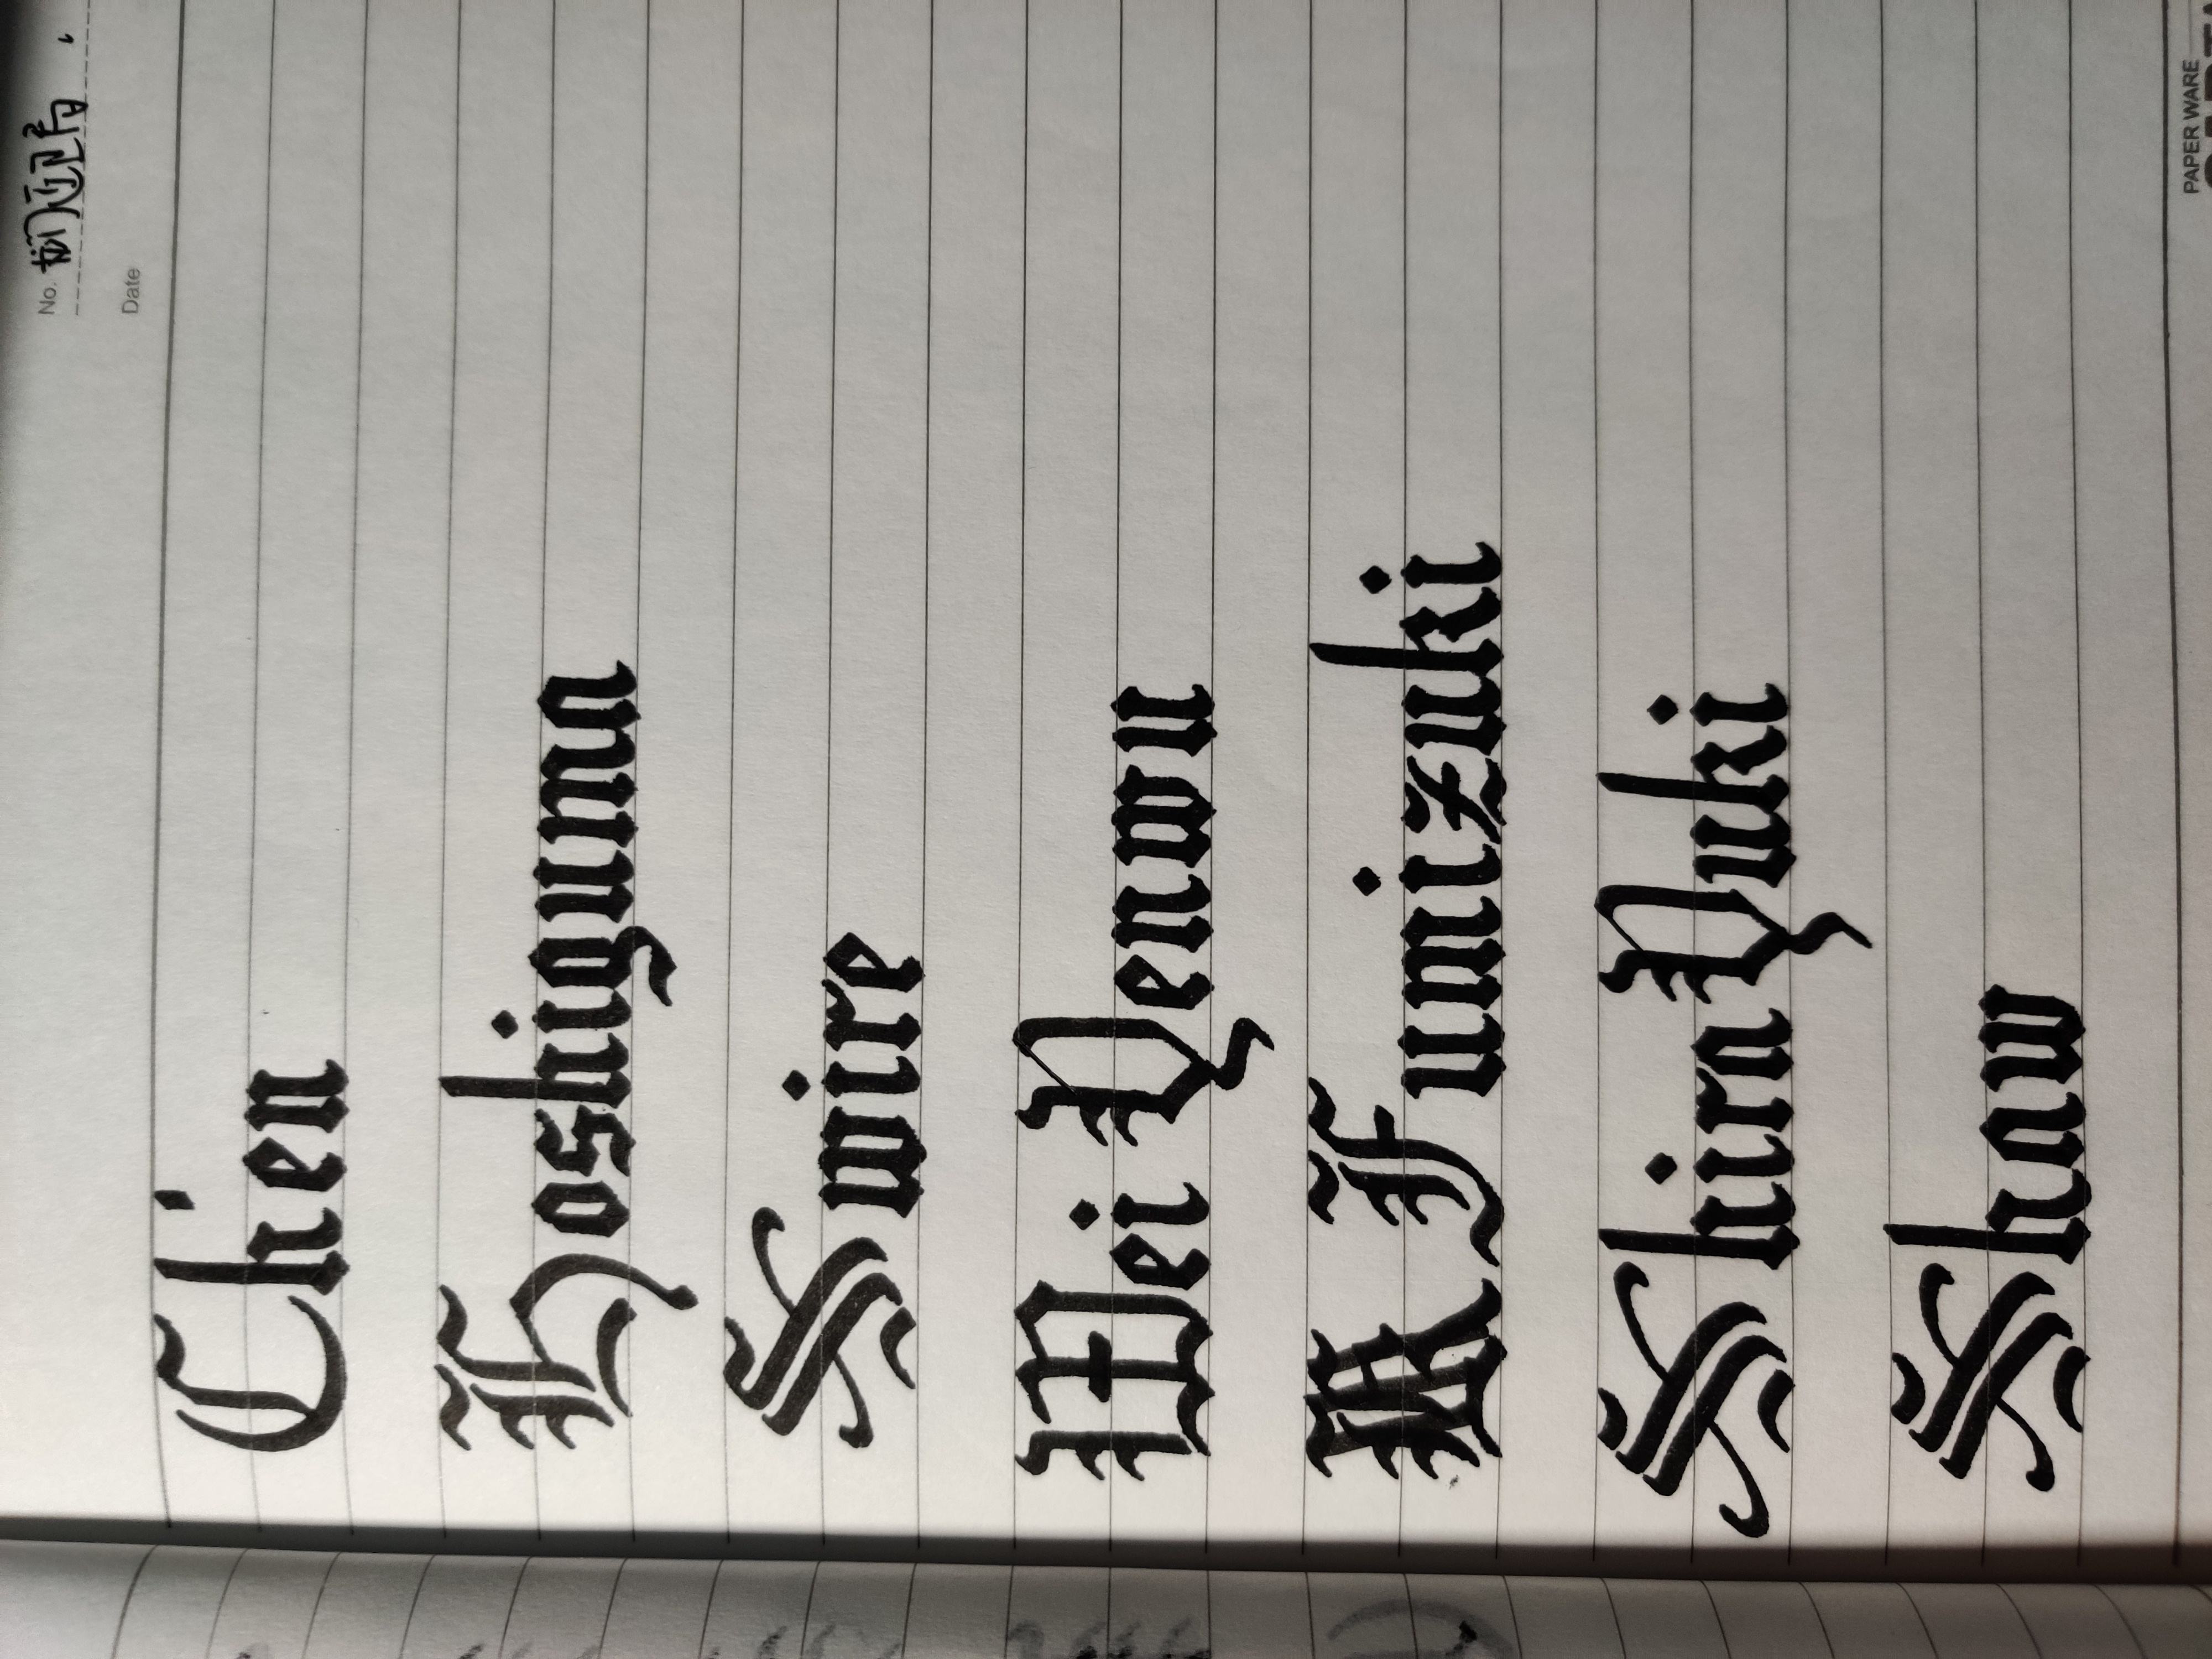 No.
Date
Ch'en
Hoshiguma
Swire
Wei Yenwu
Fumizuki
Shira Yuki
Shaw
PAPER WARE